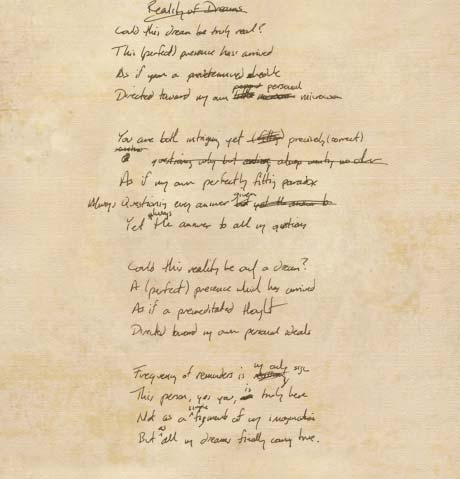 Reality of Dreams
Could this dream be truly real?
This (perfect) presence has arrived
As if upon a
Directed toward my own personal
You are both intriguing yet (fitting) precisely (correct)
questioning why but always wanting
As if my own perfectly fitting paradox
Always Questioning every answer given
Yet always the answer to all my questions
Could this reality be only a dream?
A (perfect) presence which has arrived
As if a premeditated thought
Directed toward my own personal ideals
Frequency of reminders is my only sign
This person, yes you, is truly here
Not as a simple figment of my imagination
But as all my dreams finally coming true.